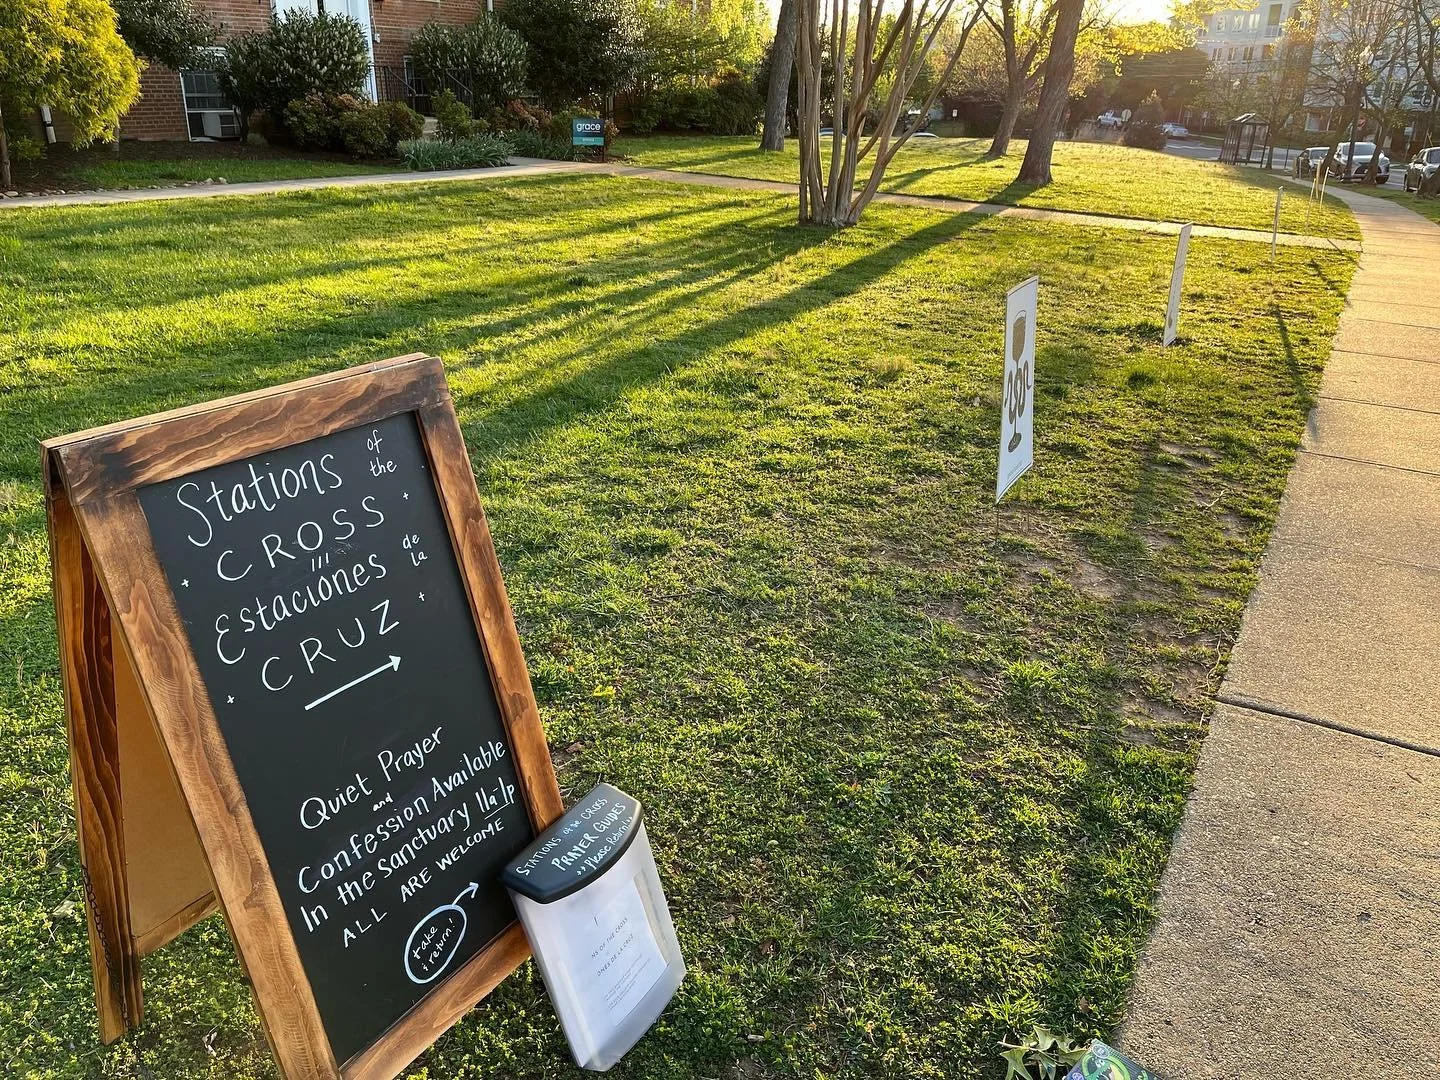 grace
Stations of the
CROSS
Estaciones de la
CRUZ
Quiet Prayer
and
Confession Available
In the Sanctuary 11a-1p
ALL ARE WELCOME
take
& return!
STATIONS of the CROSS
PRAYER GUIDES
Please Return
NS OF THE CROSS
ONES DE LA CRUZ